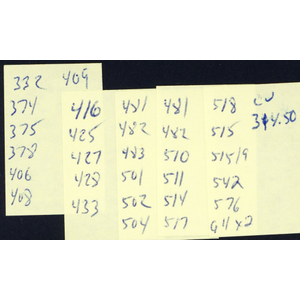 332 409
374
375
378
406
408
416
425
427
428
433
481
482
483
501
502
504
481
482
510
511
514
517
518
515
515/9
542
576
G11 x2
CU
314.50